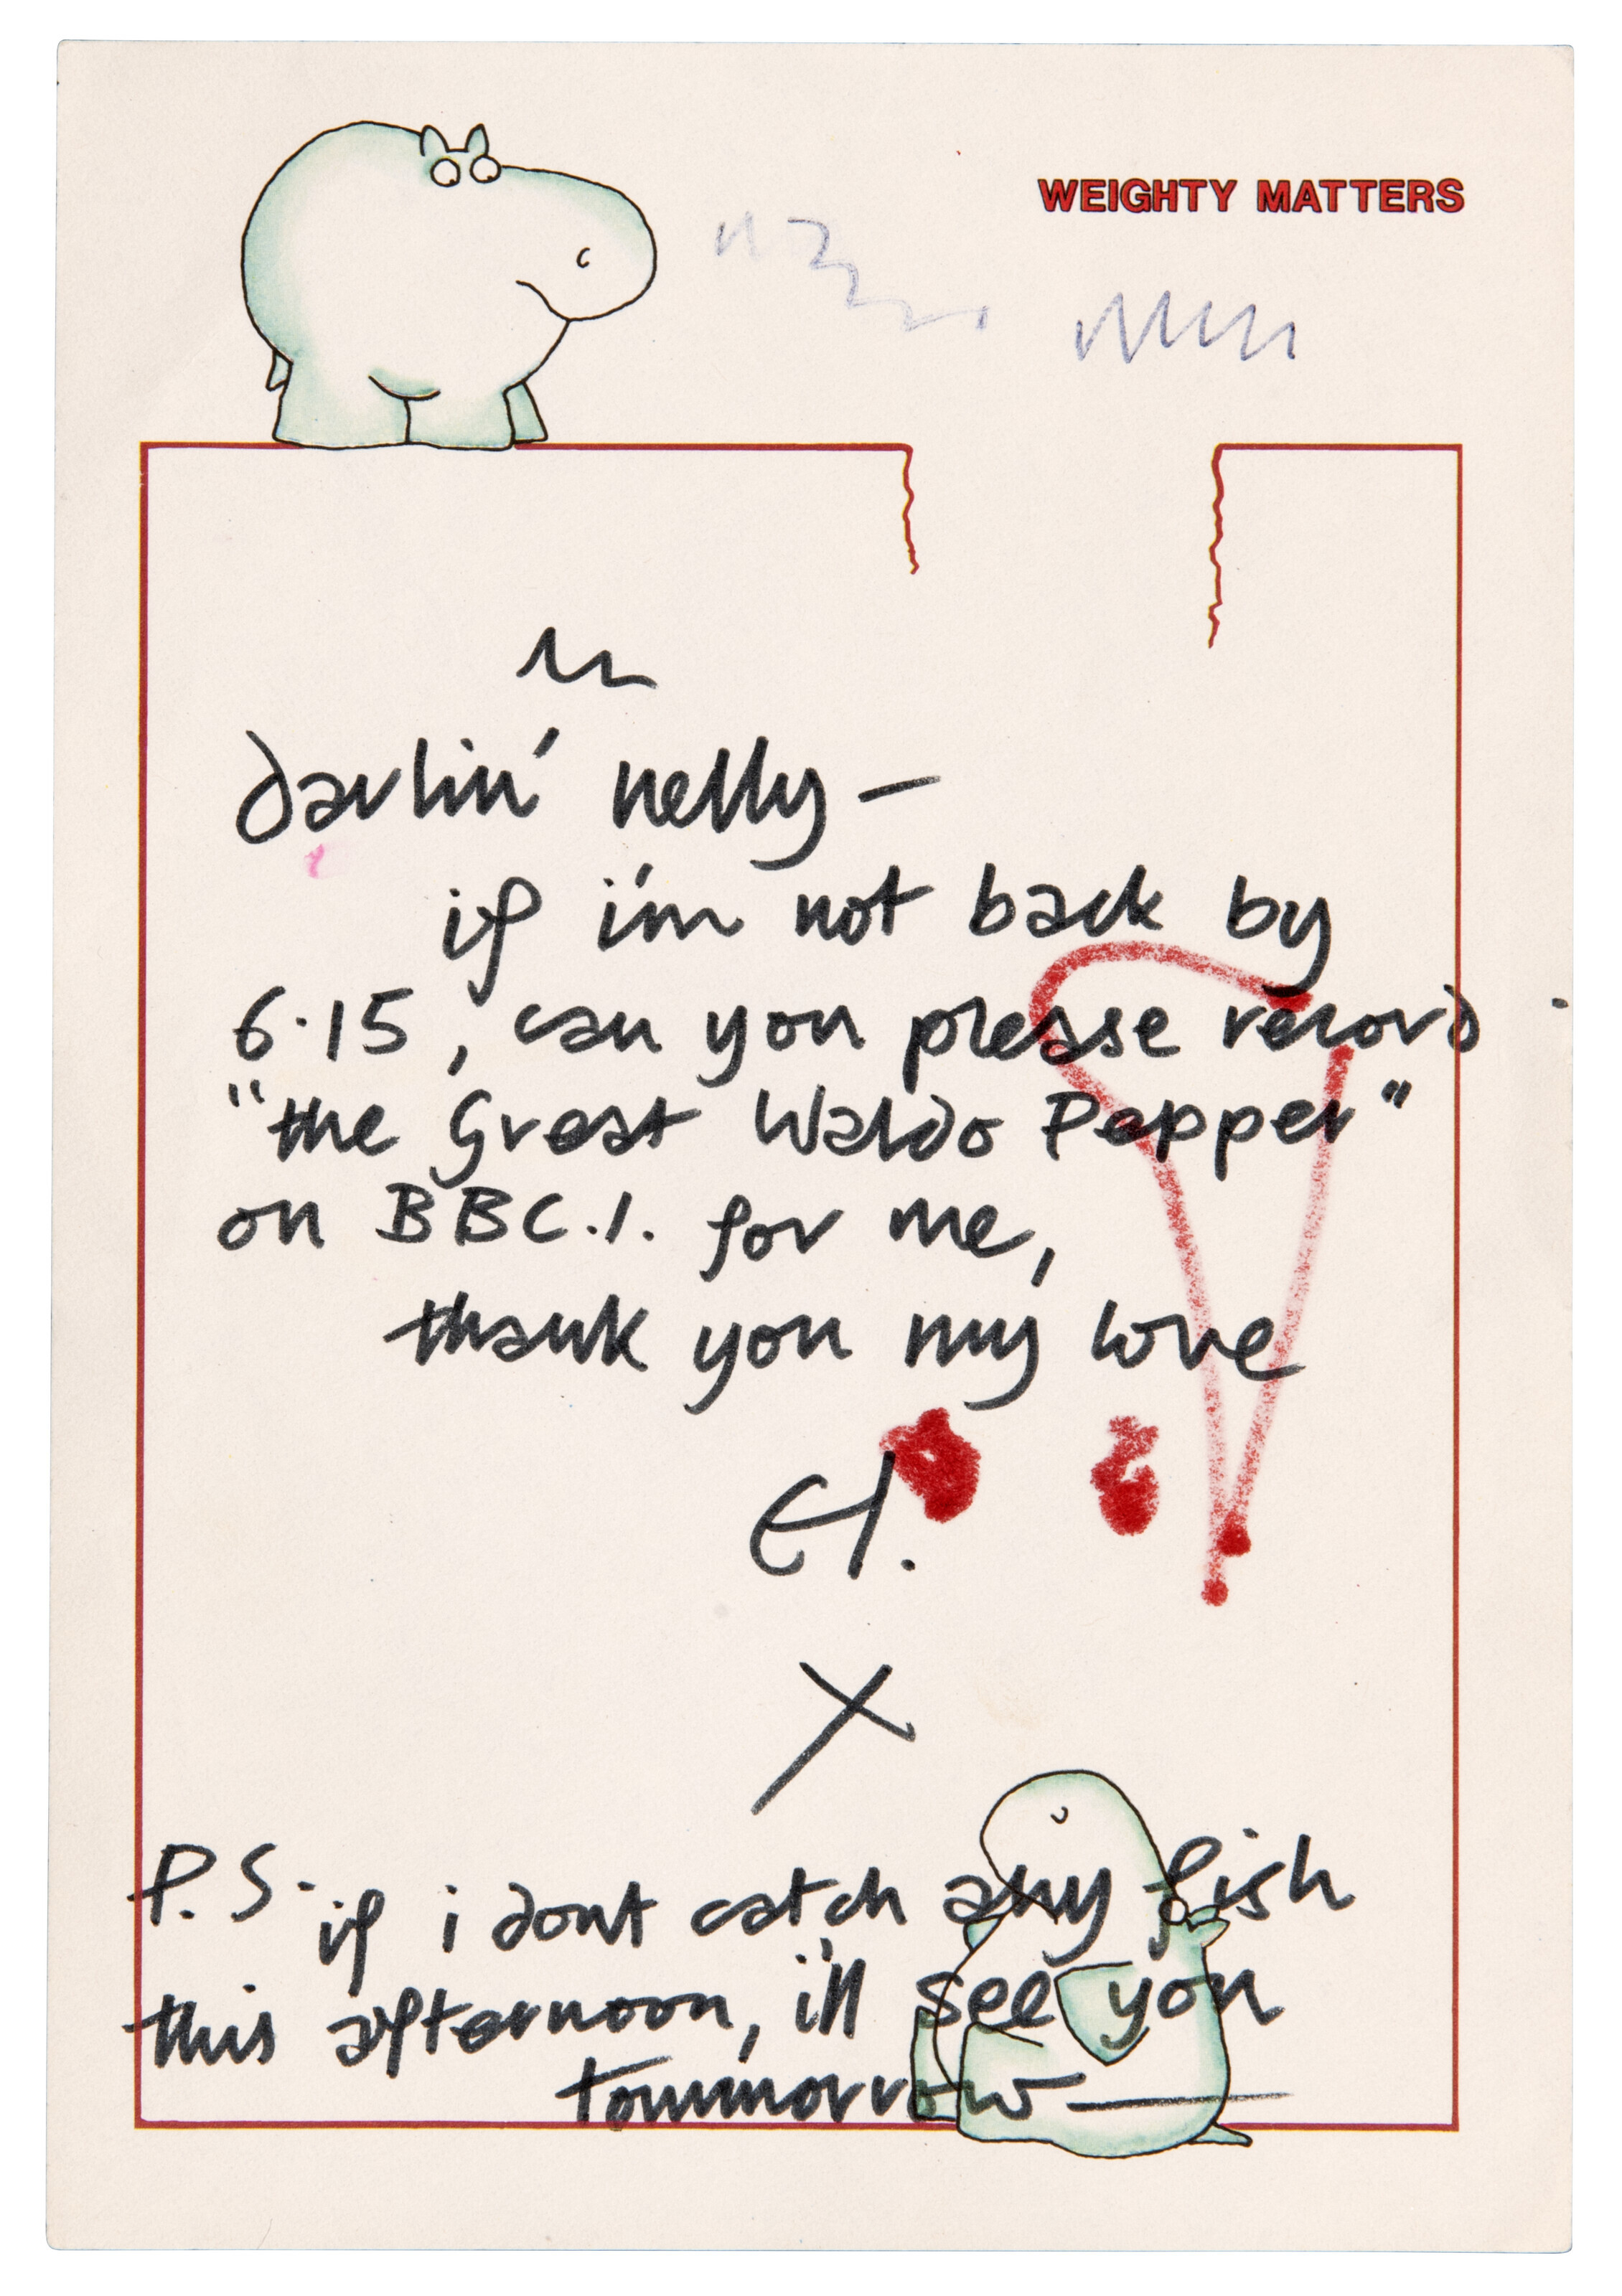 WEIGHTY MATTERS
darlin' nelly —
if i'm not back by
6.15, can you please record
"the Great Waldo Pepper"
on BBC.1. for me,
thank you my love
El.
X
P.S. if i dont catch any fish
this afternoon, i'll see you
tommorrow —